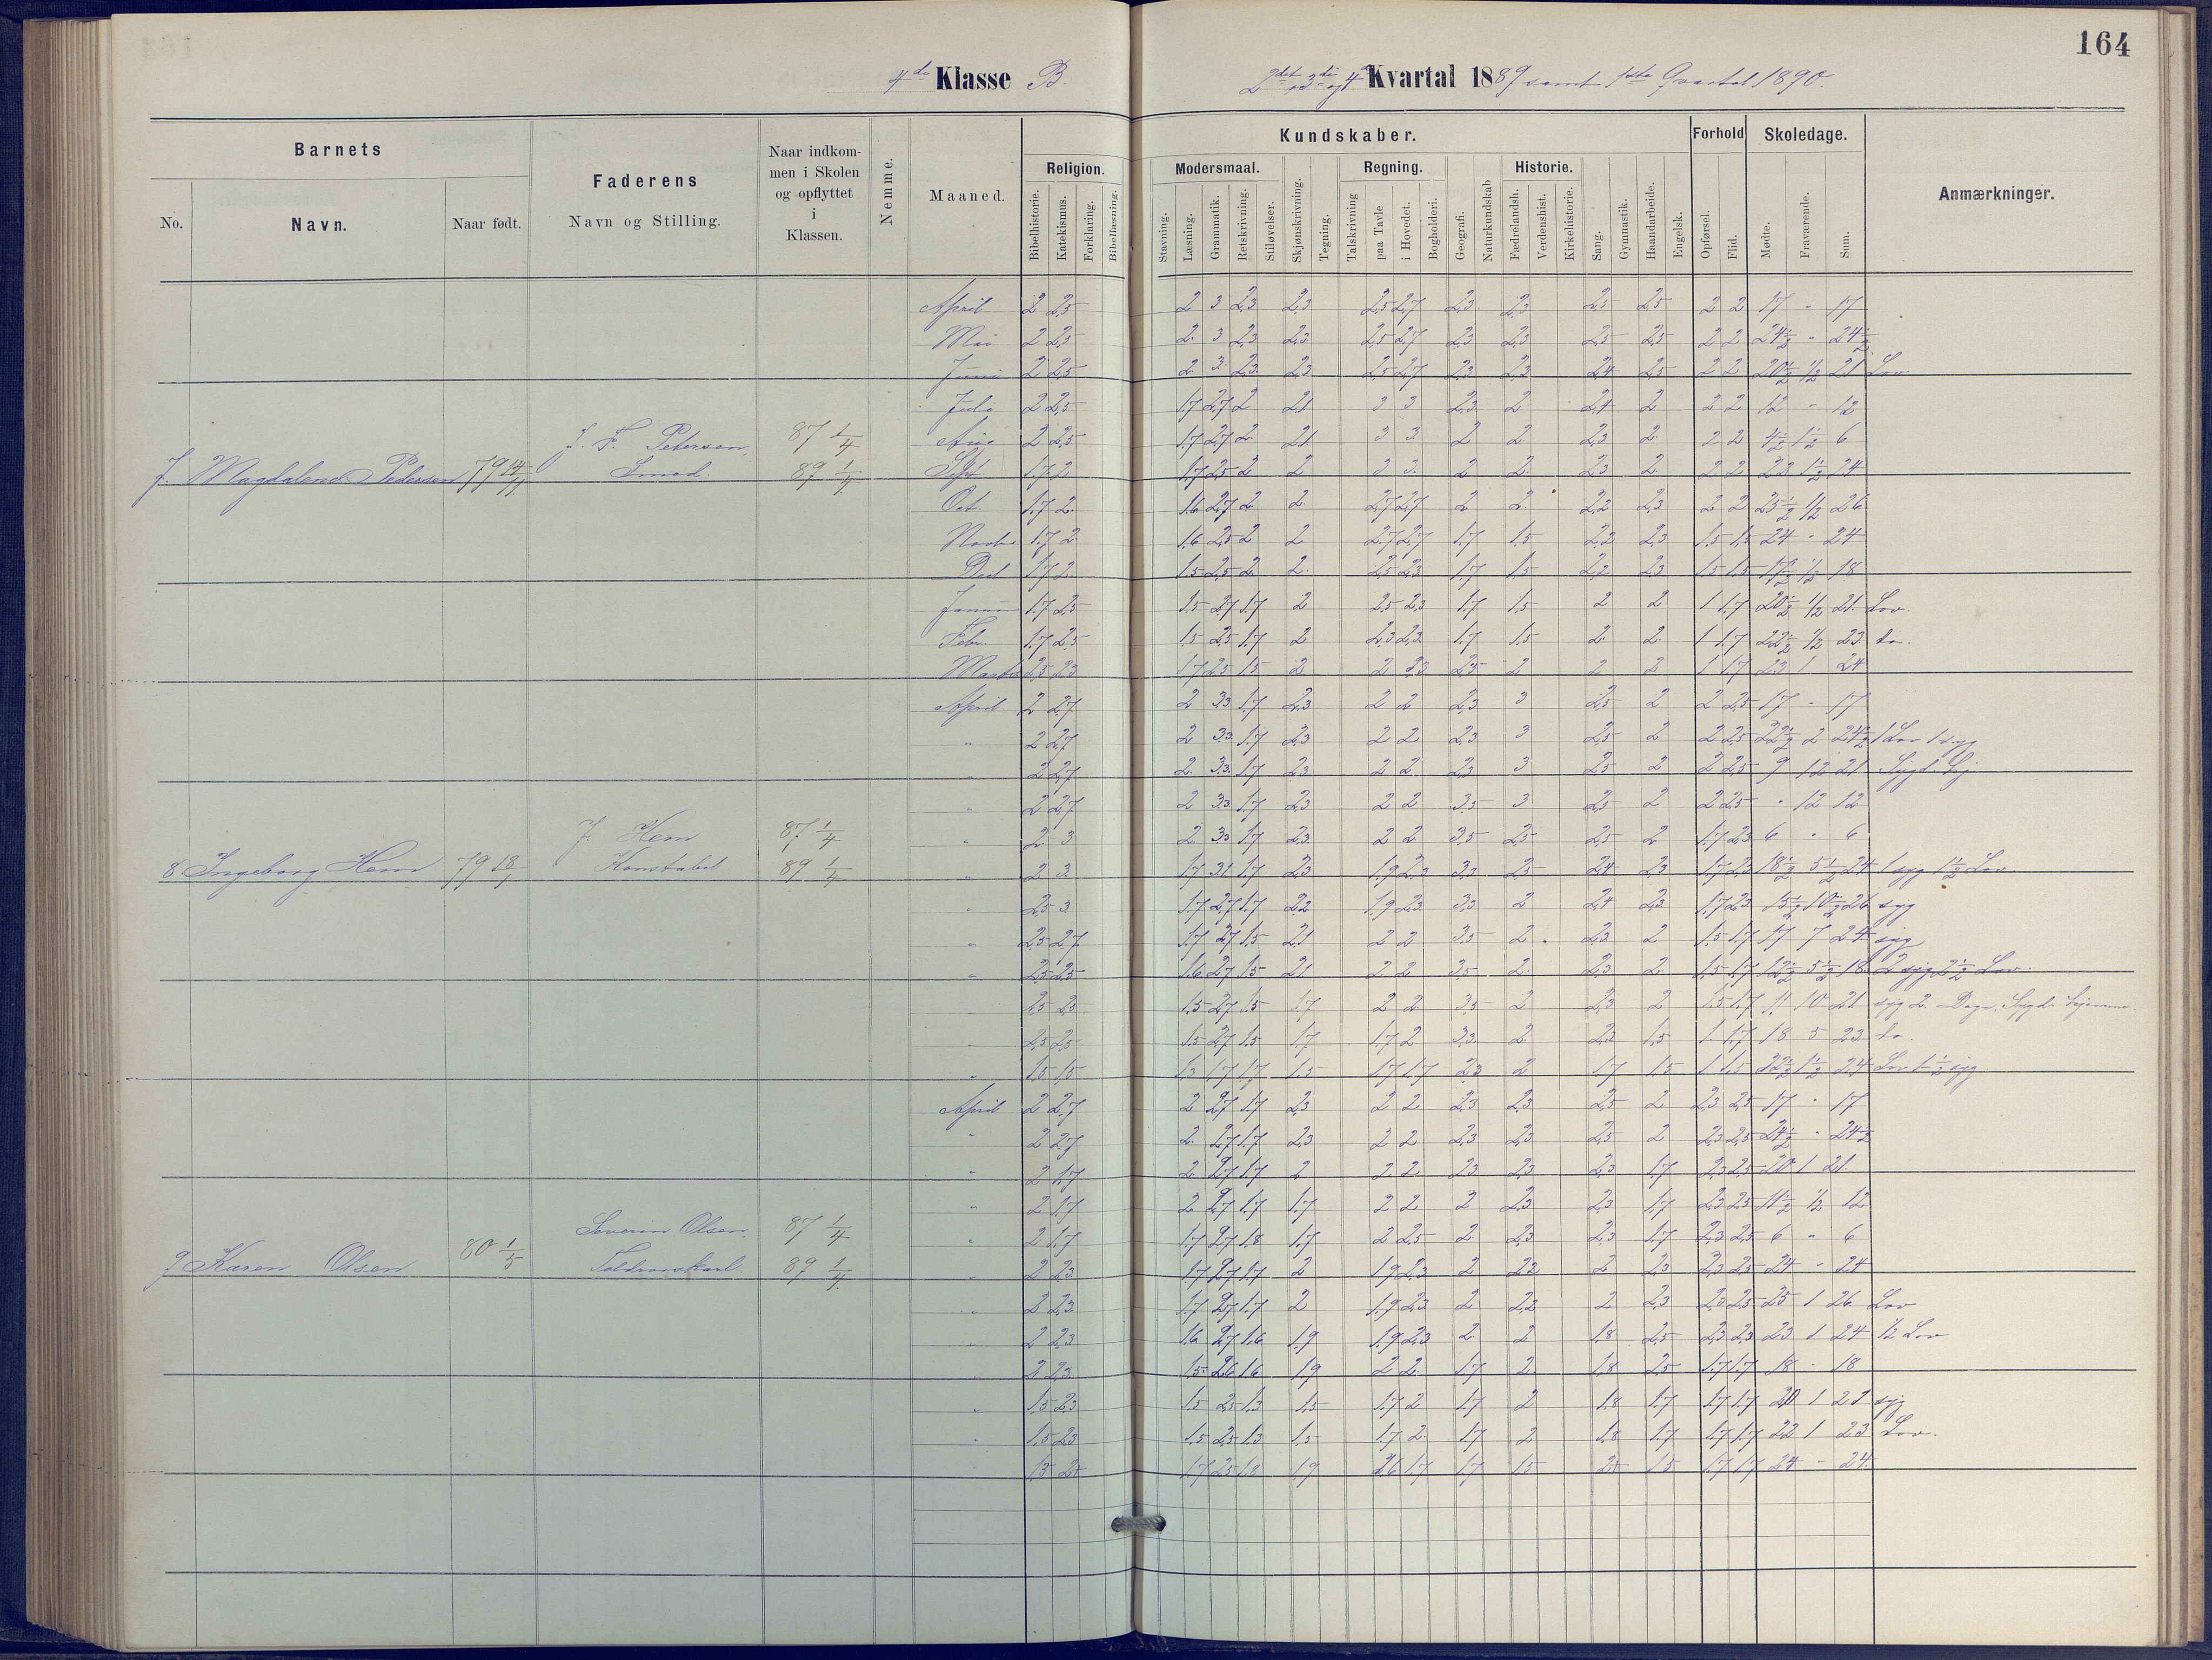 164
4de Klasse B.
2det 3die og 4de Kvartal 1889 samt 1ste Qvartal 1890.
Barnets
Faderens
Naar indkom-
men i Skolen
og opflyttet
i
Klassen.
Nemme.
Maaned.
Kundskaber.
Forhold
Skoledage.
Anmærkninger.
Religion.
Modersmaal.
Regning.
Historie.
No.
Navn.
Naar født.
Navn og Stilling.
Bibelhistorie.
Katekismus.
Forklaring.
Bibellæsning.
Stavning.
Læsning.
Grammatik.
Retskrivning.
Stiløvelser.
Skjønskrivning.
Tegning.
Talskrivning
paa Tavle
i Hovedet.
Bogholderi.
Geografi.
Naturkundskab
Fædrelandsh.
Verdenshist.
Kirkehistorie.
Sang.
Gymnastik.
Haandarbeide.
Engelsk.
Opførsel.
Flid.
Mødte.
Fraværende.
Sum.
April 2 2,5 2 3 2,3 2,3 2,5 2,7 2,3 2,3 2,5 2,5 2 2 17 - 17
Mai 2 2,5 2 3 2,3 2,3 2,5 2,7 2,3 2,3 2,5 2,5 2 2 24½ - 24½
Juni 2 2,5 2 3 2,3 2,3 2,5 2,7 2,3 2,3 2,4 2,5 2 2 20½ ½ 21 Lov
Juli 2 2,5 1,7 2,7 2 2,1 3 3 2,3 2 2,4 2 2 2 12 - 12
J. F. Petersen, 87 1/4 Aug 2 2,5 1,7 2,7 2 2,1 3 3 2 2 2,3 2 2 2 4½ 1½ 6
7. Magdalena Pedersen 79 14/11 Smed. 89 1/4 Spt 1,7 2 1,7 2,5 2 2 3 3 2 2 2,3 2 2 2 22 1½ 24
Oct. 1,7 2 1,6 2,7 2 2 2,7 2,7 2 2 2,2 2,3 2 2 25½ ½ 26
Novbr 1,7 2 1,6 2,5 2 2 2,7 2,7 1,7 1,5 2,2 2,3 1,5 1,5 24 - 24
Decb 1,7 2 1,5 2,5 2 2 2,5 2,3 1,7 1,5 2,2 2,3 1,5 1,5 17½ ½ 18
Januar 1,7 2,5 1,5 2,7 1,7 2 2,5 2,3 1,7 1,5 2 2 1 1,7 20½ ½ 21 Lov.
Febr. 1,7 2,5 1,5 2,5 1,7 2 2,3 2,3 1,7 1,5 2 2 1 1,7 22½ ½ 23 do.
Marts 2,5 2,3 1,7 2,5 1,5 2 2 2,3 2,5 2 2 2 1 1,7 23 1 24
April 2 2,7 2 3,3 1,7 2,3 2 2 2,3 3 2,5 2 2 2,5 17 - 17
" 2 2,7 2 3,3 1,7 2,3 2 2 2,3 3 2,5 2 2 2,5 22½ 2 24½ 1 Lov 1 syg
" 2 2,7 2 3,3 1,7 2,3 2 2 2,3 3 2,5 2 2 2,5 9 12 21 Sygd. hj.
" 2 2,7 2 3,3 1,7 2,3 2 2 3,5 3 2,5 2 2 2,5 - 12 12
J. Hem 87 1/4 " 2 3 2 3,3 1,7 2,3 2 2 3,5 2,5 2,5 2 1,7 2,3 6 " 6
8 Ingeborg Hem 79 18/1 Konstabel 89 1/4 " 2 3 1,7 3,1 1,7 2,3 1,9 2 3,3 2,5 2,4 2,3 1,7 2,3 18½ 5½ 24 1 syg 1½ Lov
" 2,5 3 1,7 2,7 1,7 2,2 1,9 2,3 3,3 2 2,4 2,3 1,7 2,3 15½ 10½ 26 syg
" 2,5 2,7 1,7 2,7 1,5 2,1 2 2 3,5 2 2,3 2 1,5 1,7 17 7 24 syg
" 2,5 2,5 1,6 2,7 1,5 2,1 2 2 3,5 2 2,3 2 1,5 1,7 12½ 5½ 18 2 syg 2½ Lov
" 2,5 2,5 1,5 2,7 1,5 1,7 2 2 3,5 2 2,3 2 1,5 1,7 11 10 21 syg 2 Dage. Sygd. hjemme.
" 2,5 2,5 1,5 2,7 1,5 1,7 1,7 2 3,3 2 2,3 1,5 1 1,7 18 5 23 do.
" 1,5 1,5 1,3 1,7 1,7 1,5 1,7 1,7 2,3 2 1,7 1,5 1 1,5 22½ 1½ 24 Lov 1½ syg
April 2 2,7 2 2,7 1,7 2,3 2 2 2,3 2,3 2,5 2 2,3 2,5 17 - 17
" 2 2,7 2 2,7 1,7 2,3 2 2 2,3 2,3 2,5 2 2,3 2,5 24½ - 24½
" 2 1,7 2 2,7 1,7 2 2 2 2,3 2,3 2,3 1,7 2,3 2,5 20 1 21
" 2 1,7 2 2,7 1,7 1,7 2 2 2 2,3 2,3 1,7 2,3 2,5 11½ ½ 12
Severin Olsen. 87 1/4 " 2 1,7 1,7 2,7 1,8 1,7 2 2,5 2 2,3 2,3 1,7 2,3 2,5 6 " 6
9 Karen Olsen 80 1/5 Toldroerskarl 89 1/4 " 2 2,3 1,7 2,7 1,7 2 1,9 2,3 2 2,2 2 2,3 2,3 2,5 24 - 24
" 2 2,3 1,7 2,7 1,7 2 1,9 2,3 2 2,2 2 2,3 2,3 2,5 25 1 26 Lov
" 2 2,3 1,6 2,7 1,6 1,9 1,9 2,3 2 2 1,8 2,5 2,3 2,3 23 1 24 ½ Lov
" 2 2,3 1,5 2,6 1,6 1,9 2 2 1,7 2 1,8 2,5 1,7 1,7 18 - 18
" 1,5 2,3 1,5 2,5 1,3 1,5 1,7 2 1,7 2 1,8 1,7 1,7 1,7 20 1 21 syg
" 1,5 2,3 1,5 2,5 1,3 1,5 1,7 2 1,7 2 1,8 1,7 1,7 1,7 22 1 23 Lov.
1,7 2,5 1,8 1,9 1,6 1,7 1,7 1,5 1,5 1,7 1,7 24 - 24